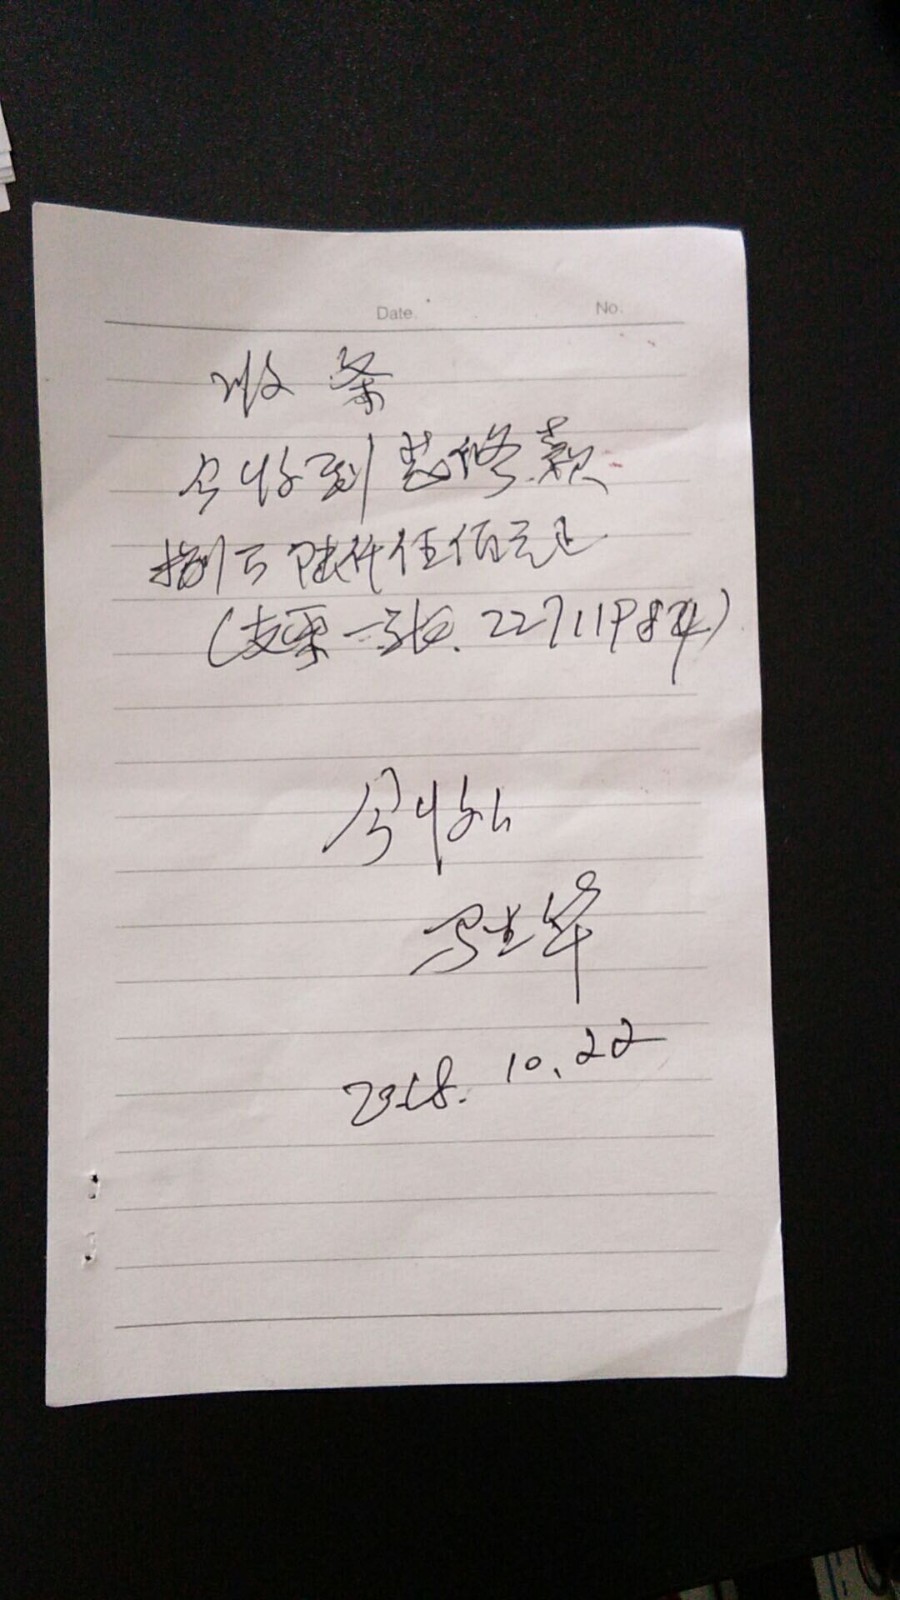 Date. No.
收条
今收到装修款
捌万陆仟伍佰元正
(支票一张.22711984)
今收
2018.10.22